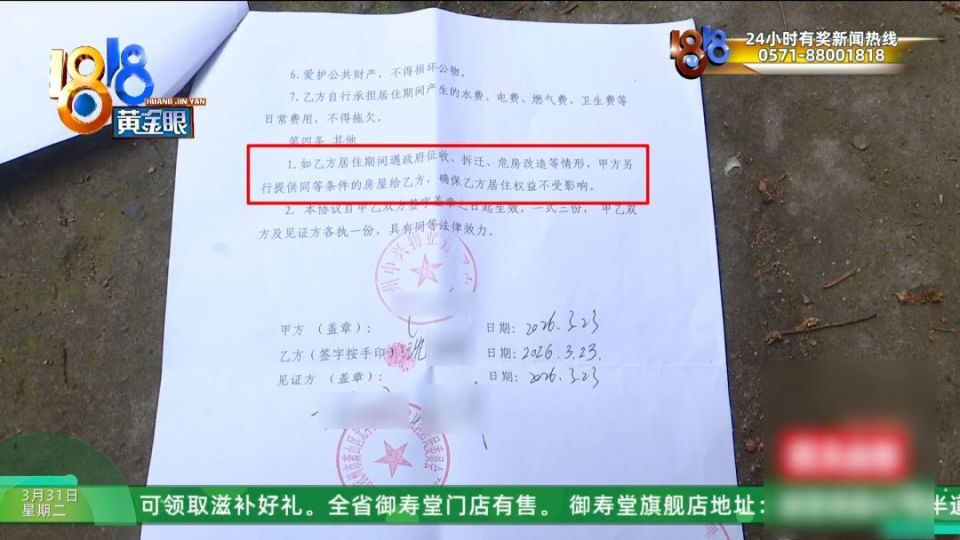 1818
HUANG JIN YAN
黄金眼
1818
24小时有奖新闻热线
0571-88001818
6. 爱护公共财产，不得损坏公物。
7. 乙方自行承担居住期间产生的水费、电费、燃气费、卫生费等
日常费用，不得拖欠。
第四条 其他
1. 如乙方居住期间遇政府征收、拆迁、危房改造等情形，甲方另
行提供同等条件的房屋给乙方，确保乙方居住权益不受影响。
2. 本协议自甲乙双方签字盖章之日起生效，一式三份，甲乙双
方及见证方各执一份，具有同等法律效力。
州中兴物业管
甲方（盖章）：
日期：2026.3.23
乙方（签字按手印）：沈
日期：2026.3.23.
见证方（盖章）：
日期：2026.3.23
市萧山区
民委员会
3月31日
星期二
可领取滋补好礼。全省御寿堂门店有售。 御寿堂旗舰店地址：
半道